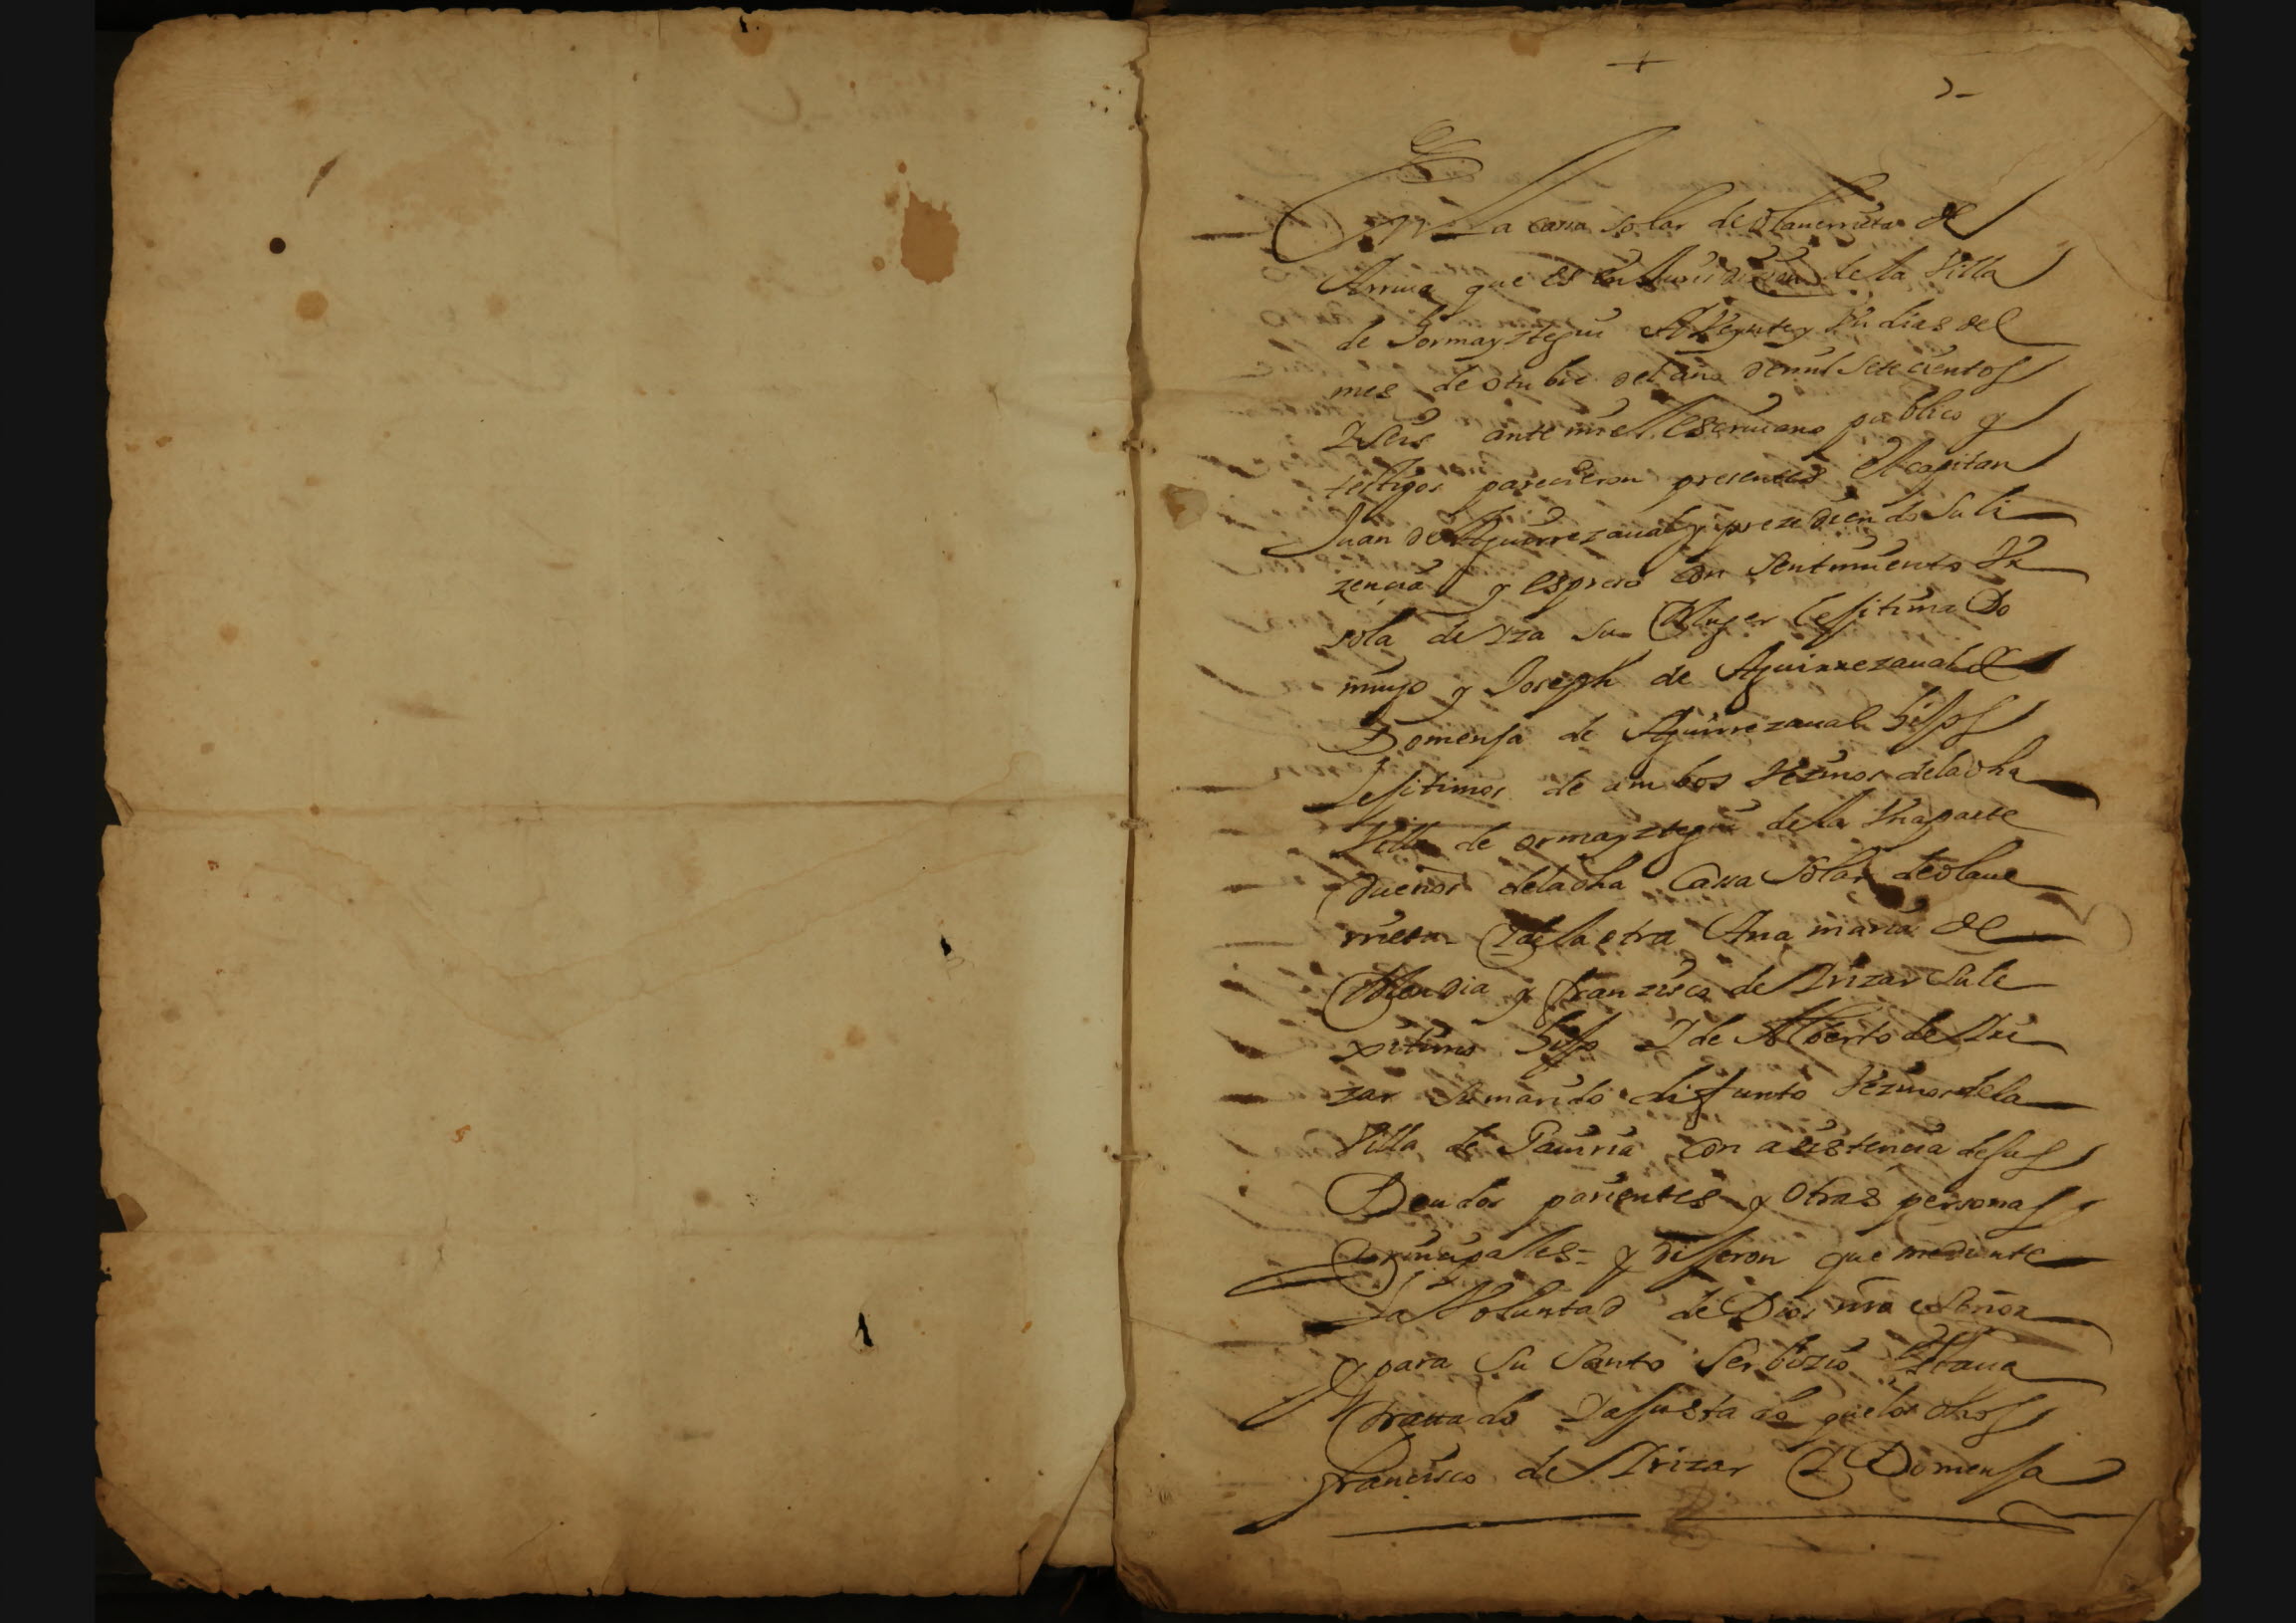 +
En la cassa solar de olauerrieta de
Arriua que es en Jurisdizion de la Villa
de hormayztegui A Veynte y Vn dias del
mes de otubre del año de mil setecientos
y seis ante mi el escriuano publico y
testigos parecieron presentes El capitan
Juan de Aguirrezaual y prezediendo su li
zencia y espreso consentimiento Vr
sola de yza su Muger lesitima Do
mingo y Joseph de Aguirrezaual y
Domenja de Aguirrezaual hijos
lesitimos de ambos Vezinos de la dha
Villa de ormayztegui de la Vna parte
dueños de la dha Cassa Solar de olaue
rrieta Y de la otra Ana maria de
Mendia y franzisco de Yrizar su le
xitimo hijo Y de Alberto de Yri
zar su marido difunto Vezinos de la
Villa de Gauiria con asistencia de sus
Deudos parientes y otras personas
Prinzipales = y disseron que mediante
la Voluntad de Dios nro Señor
y para su Santo Serbizio Estaua
tratado Y ajustado que los dhos
francisco de Yrizar Y Domenja